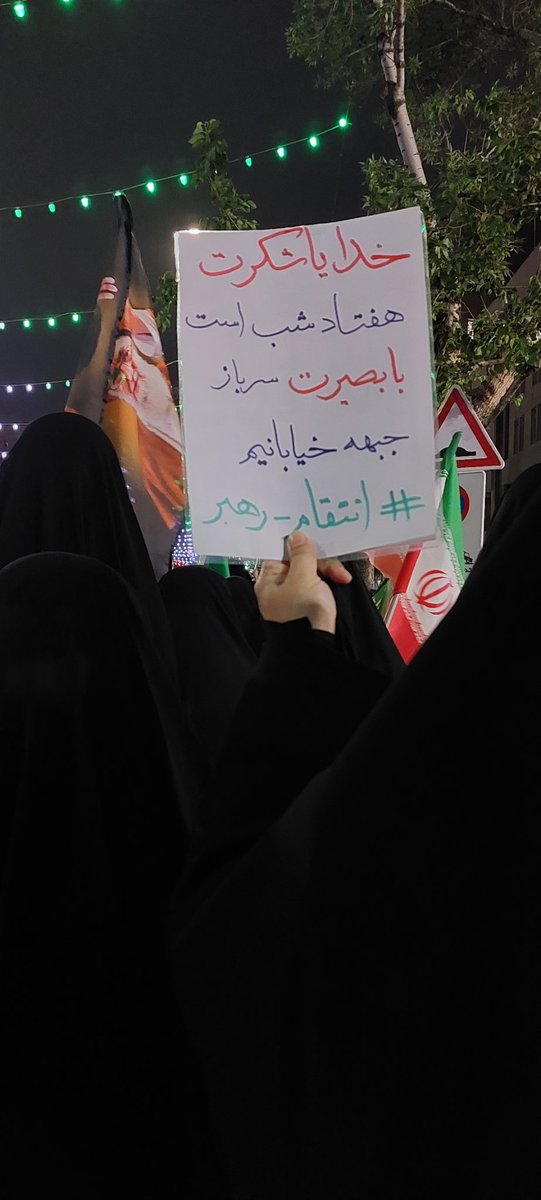 خدایا شکرت
هفتاد شب است
با بصیرت سرباز
جبهه خیابانیم
# انتقام_رهبر